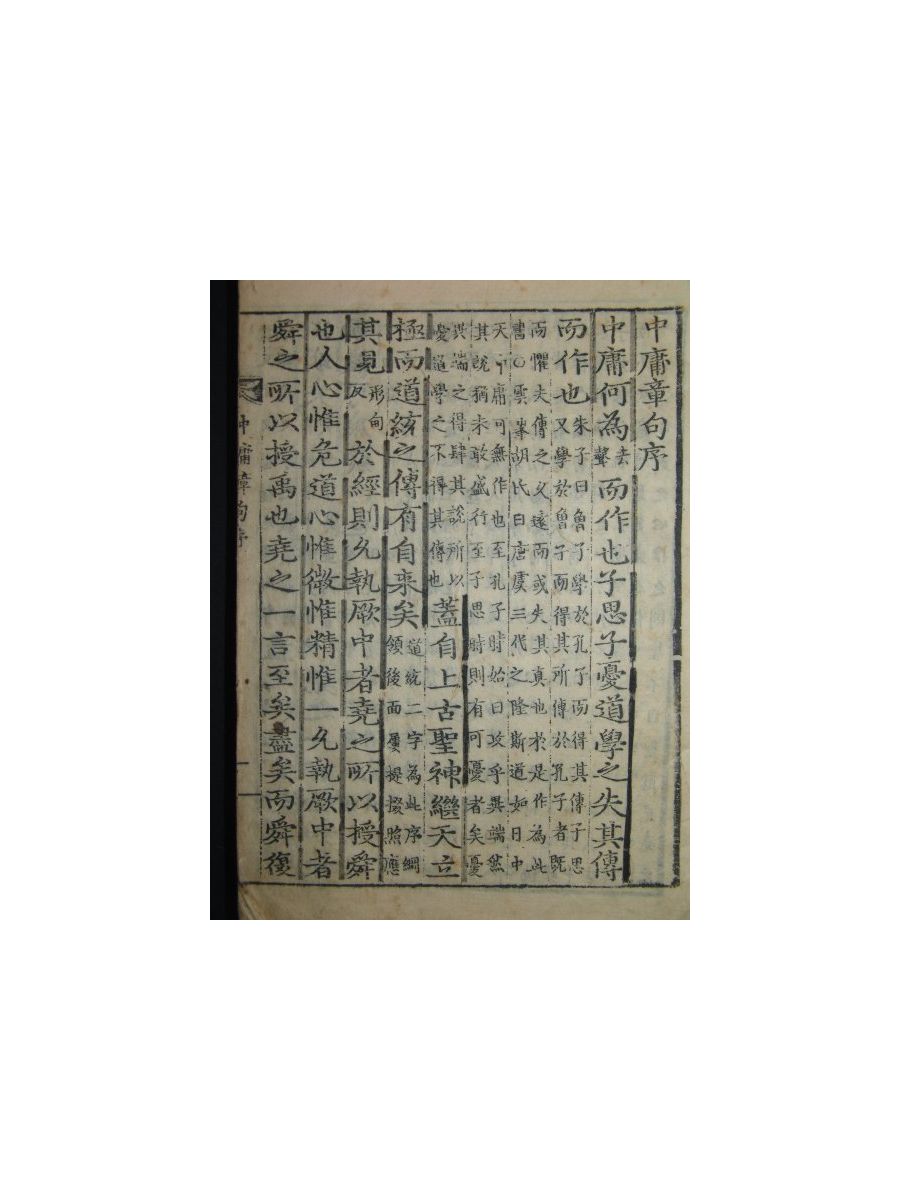 中庸章句序
中庸何為去聲而作也子思子憂道學之失其傳
而作也朱子曰曾子學於孔子而得其傳子思又學於曾子而得其所傳於孔子者既
而懼夫傳之久遠而或失其真也於是作為此書○雲峯胡氏曰唐虞三代之隆斯道如日中
天中庸可無作也至孔子時始曰攻乎異端然其說猶未敢盛行至子思時則有可憂者矣憂
異端之得肆其說所以憂道學之不得其傳也蓋自上古聖神繼天立
極而道統之傳有自来矣道統二字為此序綱領後面屢提掇照應
其見形甸反於經則允執厥中者堯之所以授舜
也人心惟危道心惟微惟精惟一允執厥中者
舜之所以授禹也堯之一言至矣盡矣而舜復
中庸章句序